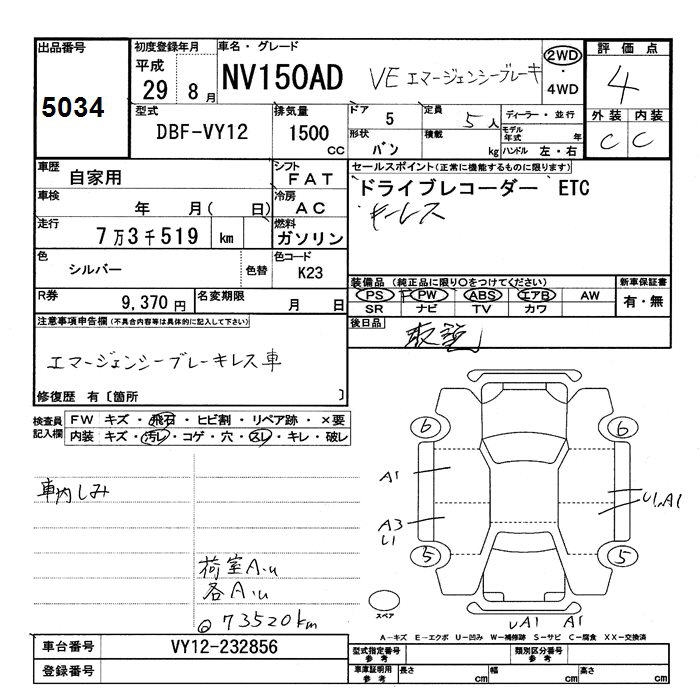 出品番号
5034
初度登録年月
平成
29 8月
車名・グレード
NV150AD VE エマージェンシーブレーキ
2WD
・
4WD
評価点
4
外装 内装
C C
型式
DBF-VY12
排気量
1500
CC
ドア 5
定員 5人
ディーラー・並行
形状 バン
積載 kg
モデル年式 年
ハンドル 左・右
車歴 自家用
シフト FAT
セールスポイント(正常に機能するものに限ります)
ドライブレコーダー ETC
キーレス
車検 年 月( 日)
冷房 AC
走行 7万3千519 km
燃料 ガソリン
色 シルバー 色替
色コード K23
装備品 (純正品に限り○をつけてください)
PS PW ABS エアB AW
SR ナビ TV カワ
新車保証書
有・無
R券 9,370円
名変期限 月 日
後日品 取説
注意事項申告欄(不具合内容等は具体的に記入して下さい)
エマージェンシーブレーキレス車
修復歴 有〔箇所 〕
検査員記入欄
FW キズ・飛石・ヒビ割・リペア跡・×要
内装 キズ・汚レ・コゲ・穴・スレ・キレ・破レ
車内しみ
荷室A.u
各A.u
@73520km
6 6
A1
U1,A1
A3
U1
5 5
スペア
UA1 A1
A―キズ E―エクボ U―凹み W―補修跡 S―サビ C―腐食 XX―交換済
車台番号 VY12-232856
登録番号
型式指定番号 参考
類別区分番号 参考
車庫証明用 参考
長さ cm
幅 cm
高さ cm